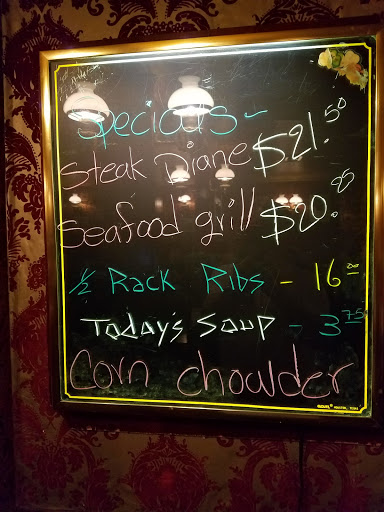 Specials ~
Steak Diane $21.50
Seafood grill $20.00
1/2 Rack Ribs - 16.00
Today's Soup - 3.75
Corn chowder